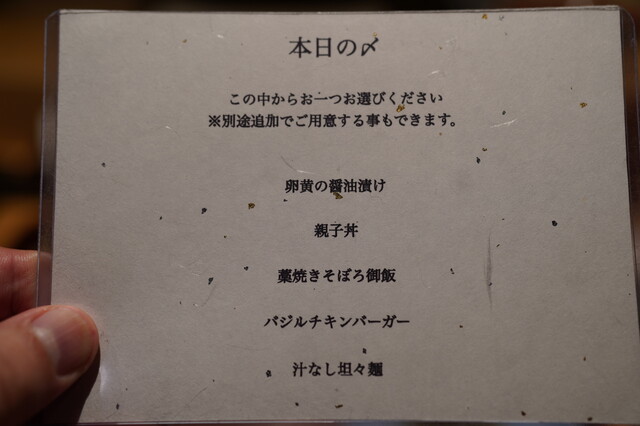 本日の〆
この中からお一つお選びください
※別途追加でご用意する事もできます。
卵黄の醤油漬け
親子丼
藁焼きそぼろ御飯
バジルチキンバーガー
汁なし坦々麺